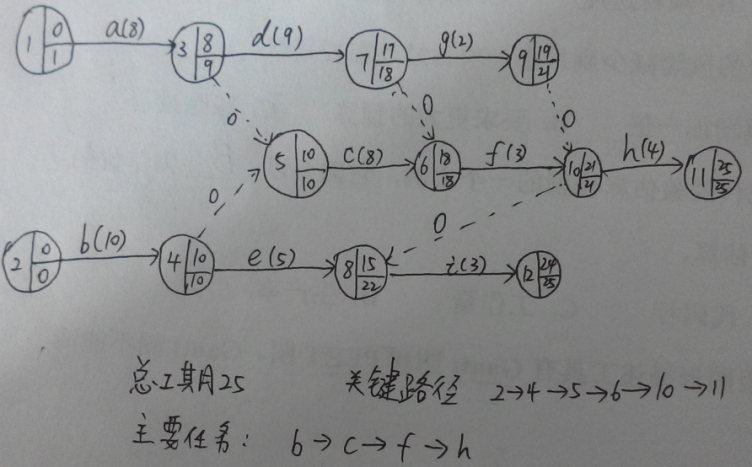 1 0 1 a(8) 3 8 9 d(9) 7 17 18 g(2) 9 19 21
0 0 0
5 10 10 c(8) 6 18 18 f(3) 10 21 21 h(4) 11 25 25
0 0
2 0 0 b(10) 4 10 10 e(5) 8 15 22 i(3) 12 24 25
总工期25 关键路径 2→4→5→6→10→11
主要任务: b→c→f→h